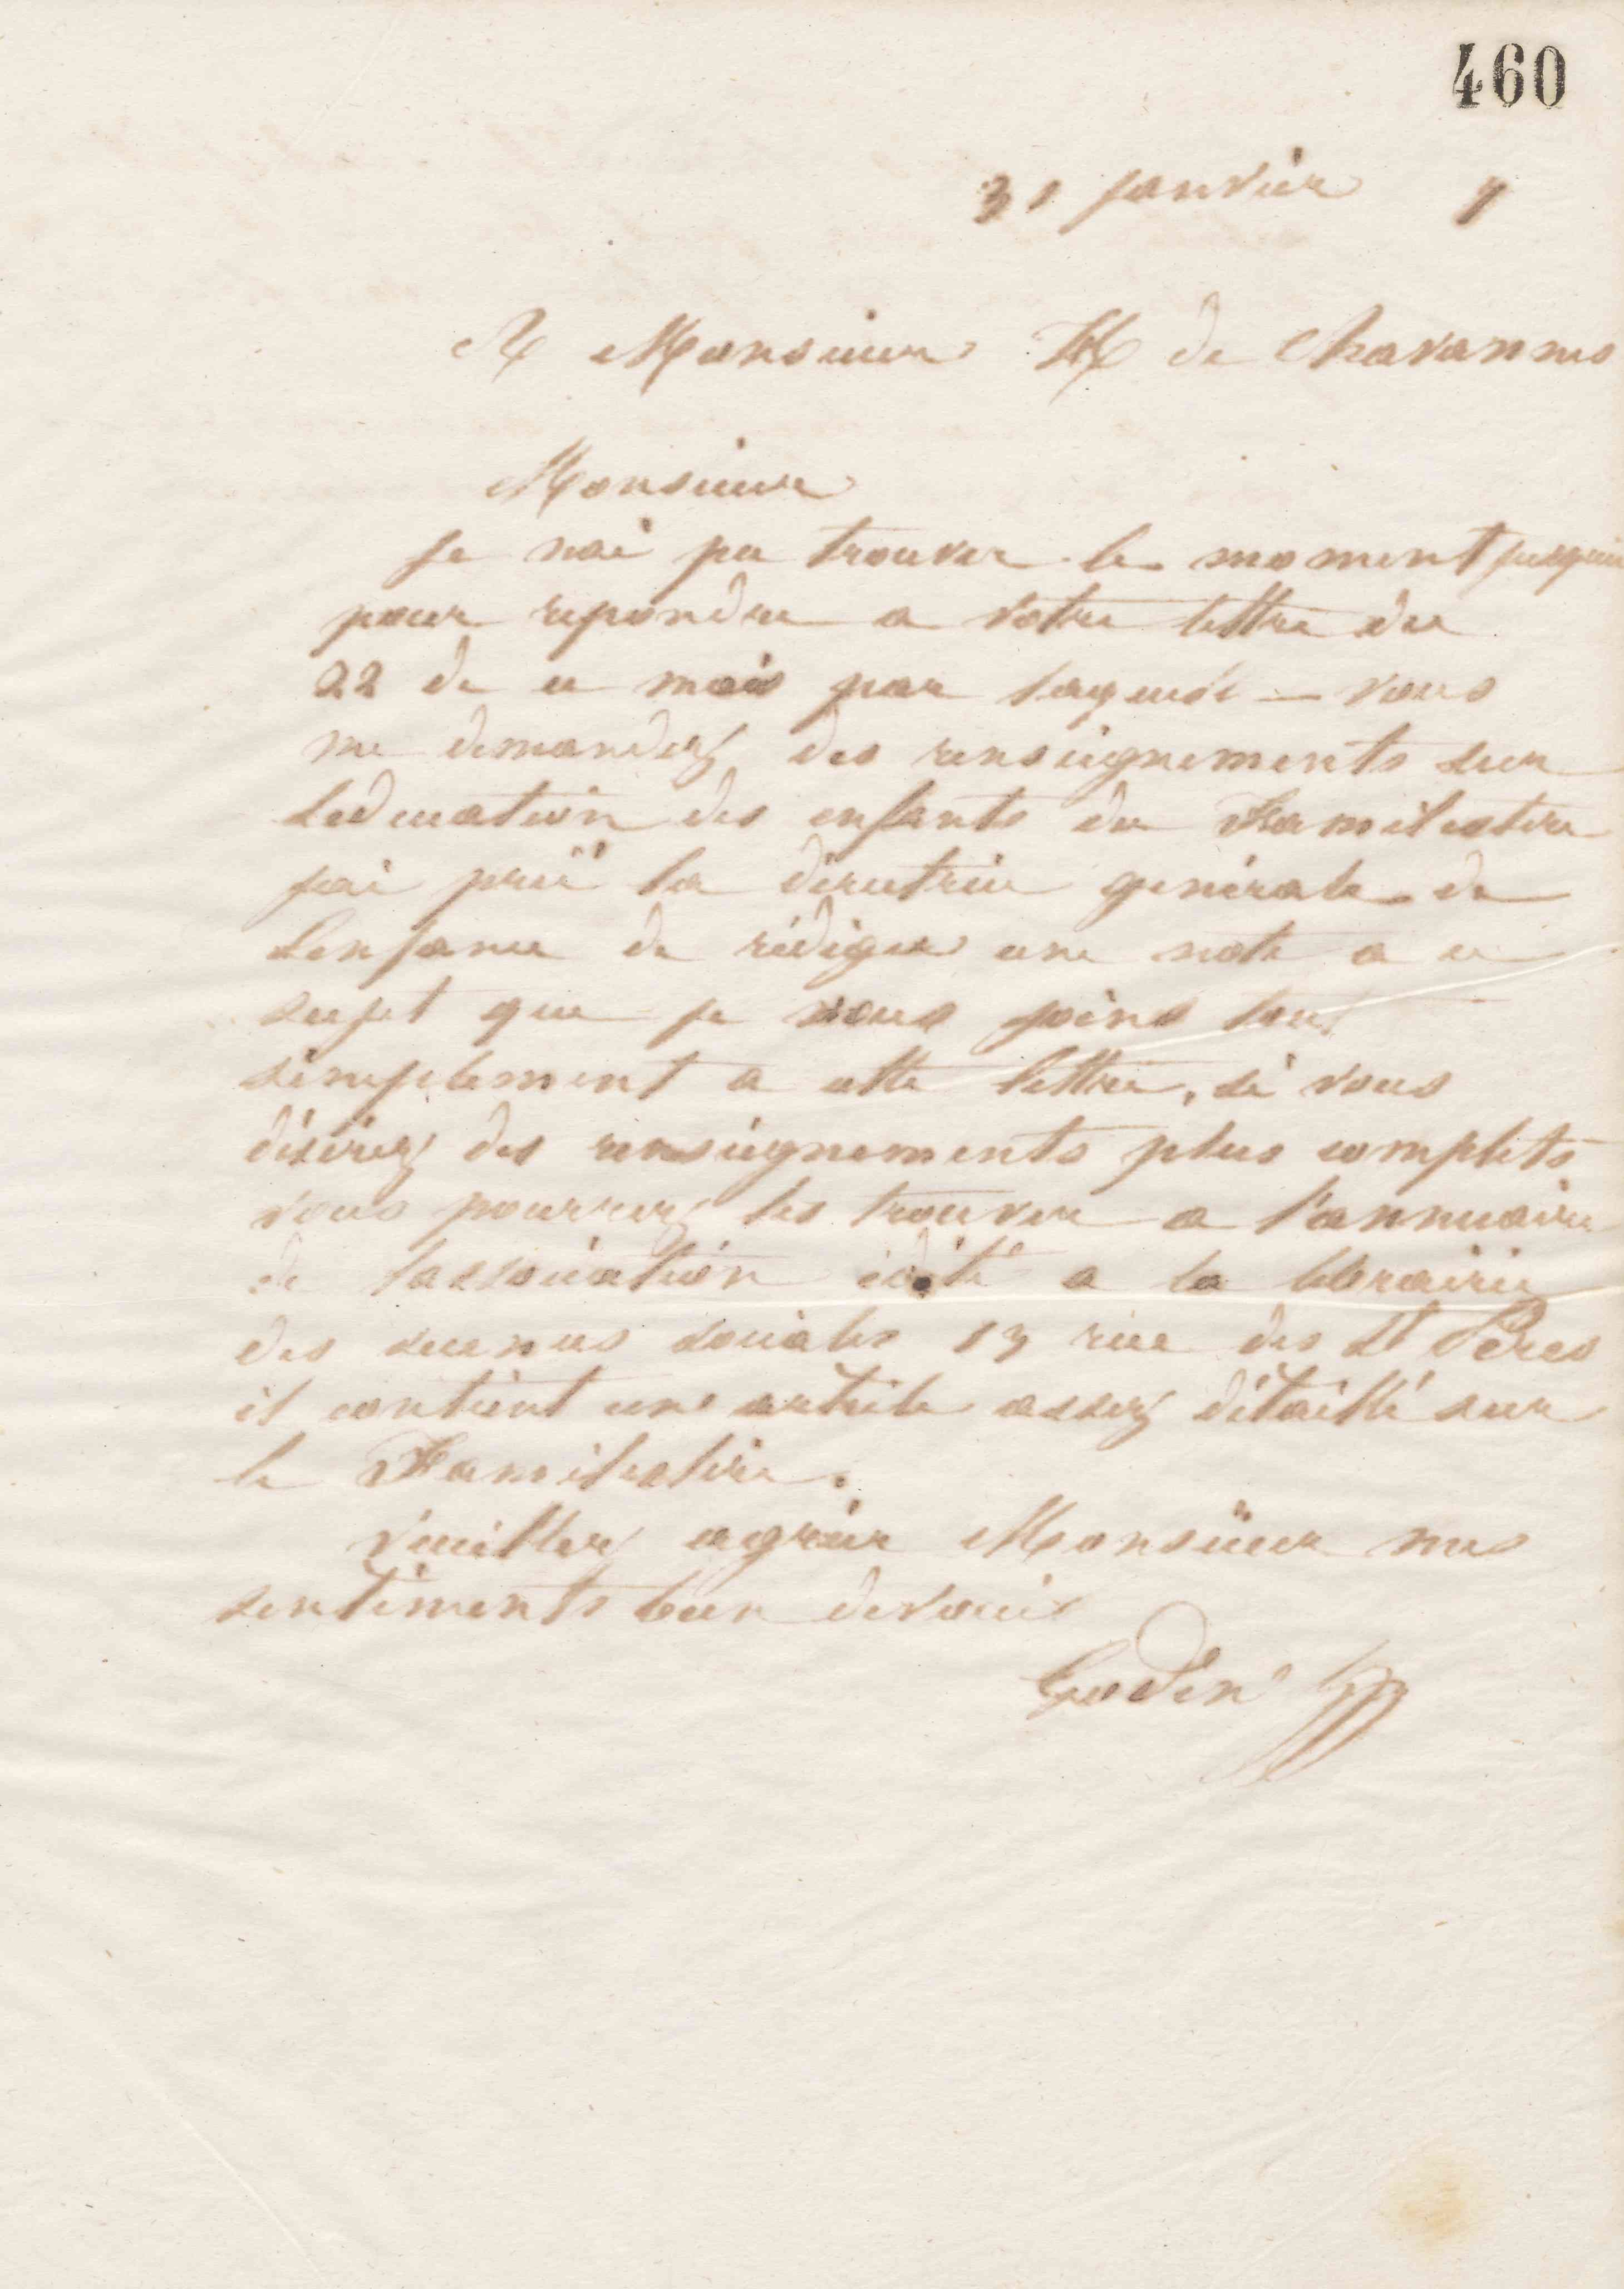 460
31 janvier 7
A Monsieur H de Chavannes
Monsieur
je nai pu trouver le moment jusquici
pour repondre a votre lettre du
22 de ce mois par laquele — vous
me demandez des renseignements sur
leducation des enfants du Familistere
jai prié la directrice generale de
Lenfance de rédiger une note a ce
sujet que je vous joins tout
simplement a cette lettre, si vous
désirez des renseignements plus complets
vous pourrez les trouver a l'annuaire
de lassociation édité a la librairie
des sciences sociales 13 rue des St Pères
il contient une article assez détaillé sur
le Familistere.
Veuillez agréer Monsieur mes
sentiments bien devoués
Godin